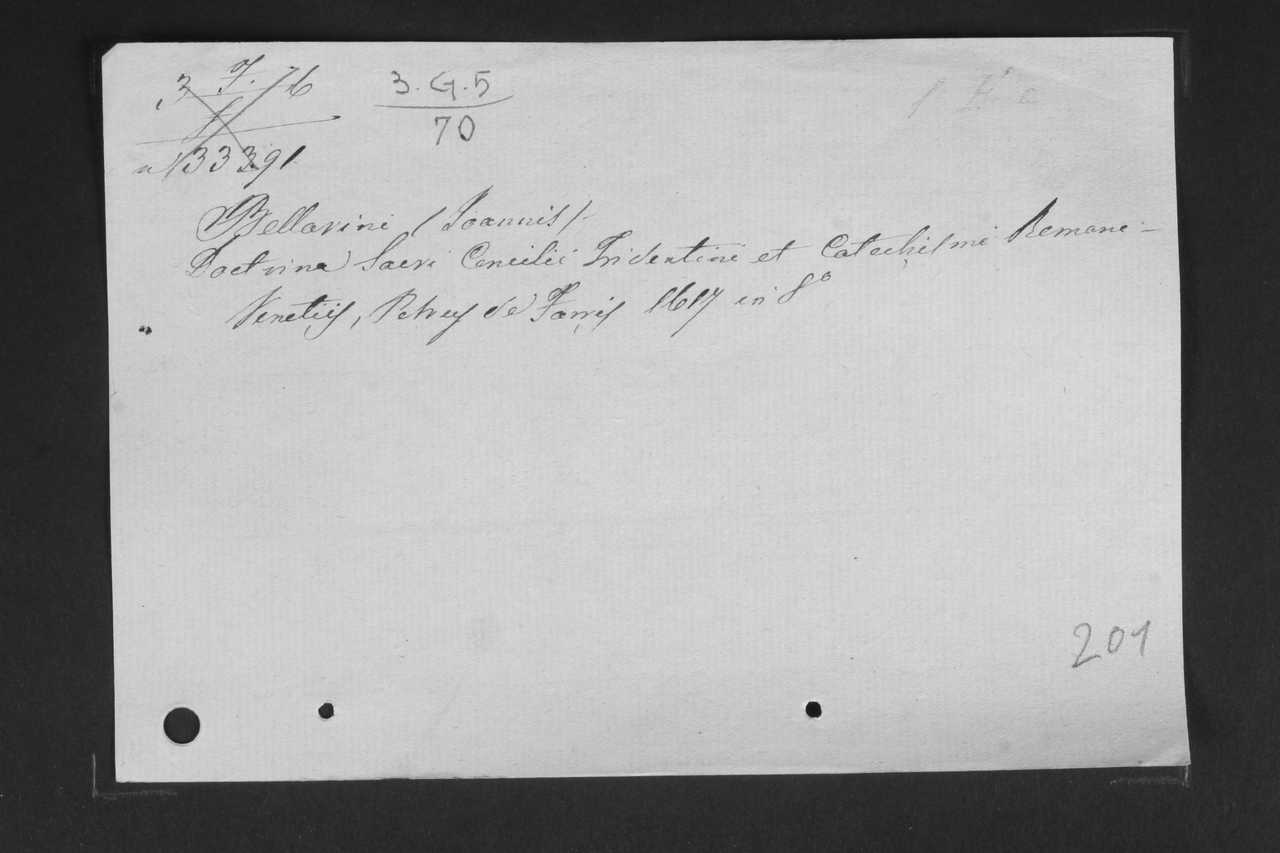 3 7. 76
3. G. 5
70
n 133391
Bellarini (Joannis)
Doctrina Sacri Concilii Tridentini et Catechismi Romani -
Venetiis, Petrus de Farris 1617 in 8°
201